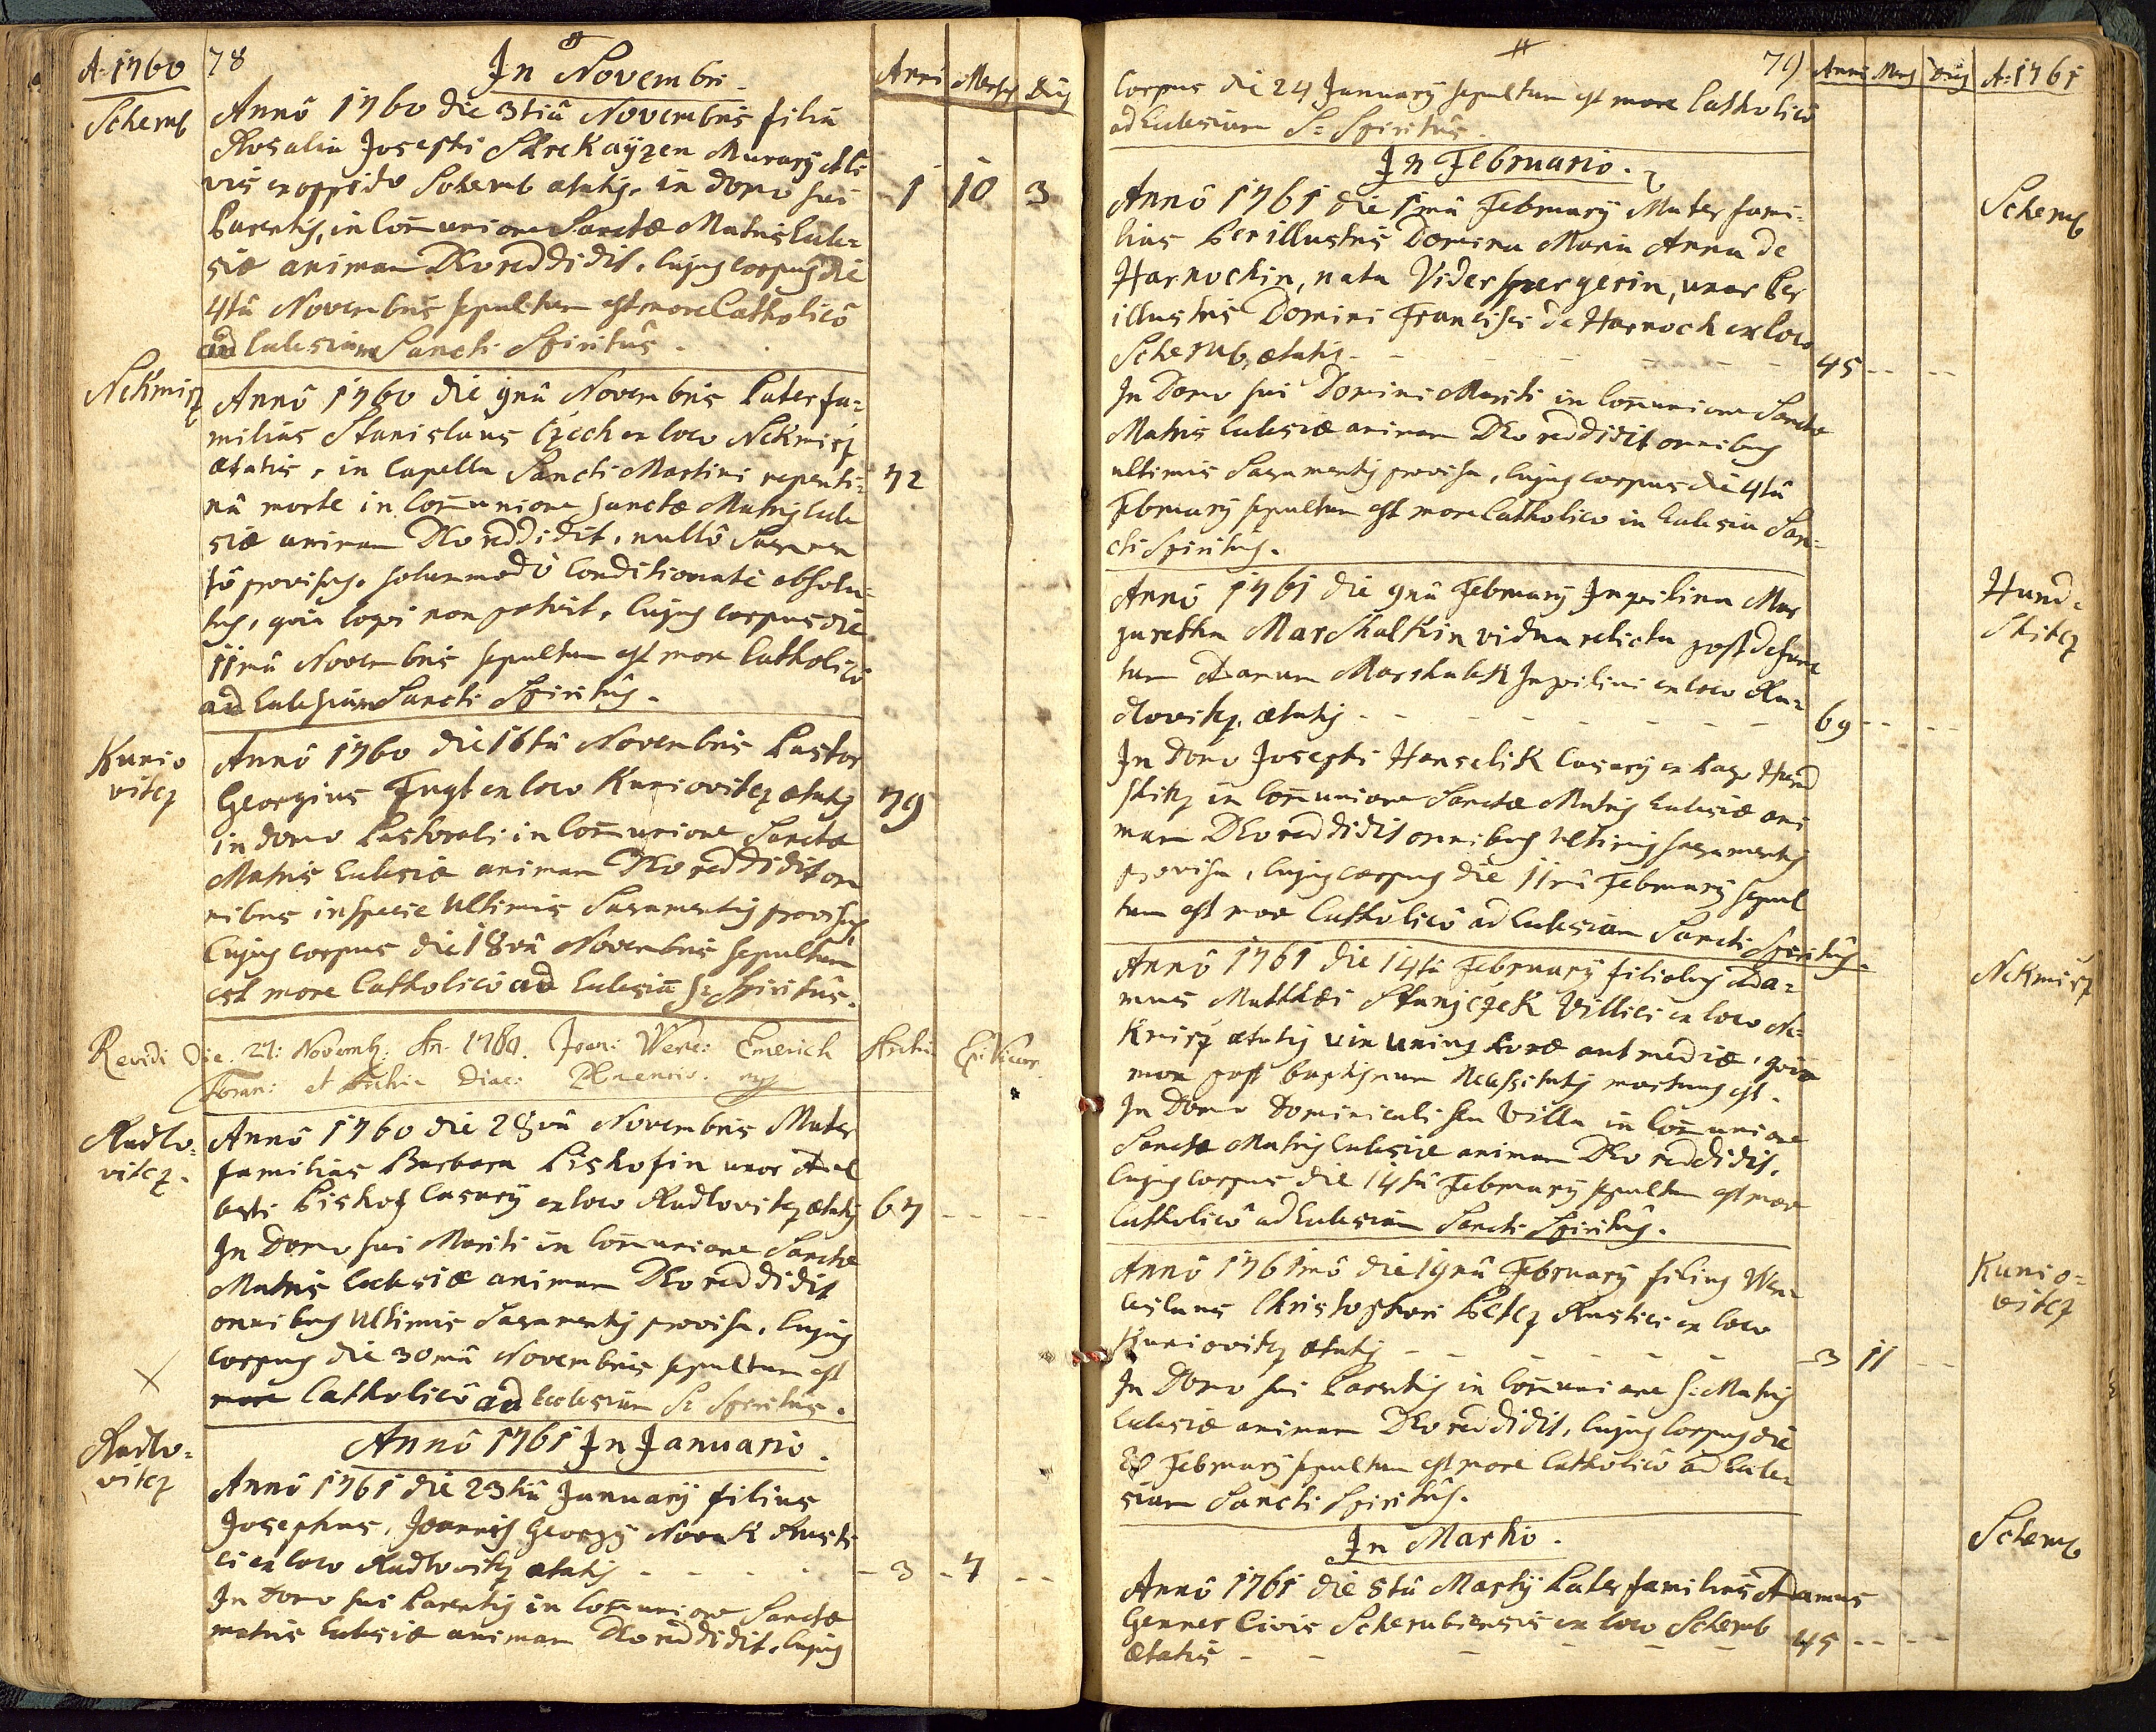 A: 1760
78
In Novembri.
Anni Menses Dies
Scherub
Annô 1760 die 3tiâ Novembris filia
Rosalia Josephi Skrekaÿzen Murarÿ et Ci
vis ex oppido Scherub ætatis, in domo sui 1 10 3
Parentis, in Com̄unione Sanctæ Matris Eccle=
siæ animam DEo reddidit, cujus corpus die
4tâ Novembris sepultum est more Catholicô
ad Ecclesiam Sancti Spiritûs.
Nekmirz
Annô 1760 die 9nâ Novembris Paterfa=
milias Stanislaus Czech ex loco Nekmirz
ætatis, in Capella Sancti Martini repenti= 72
nâ morte in Com̄unione Sanctæ Matris Eccle
siæ animam DEo reddidit, nullô Sacramen
tô provisus, solummodô Conditionatè absolu=
tus, quia loqui non potuit, Cujus corpus die
11mâ Novembris sepultum est more Catholicô
ad Ecclesiam Sancti Spiritûs.
Kunio
vitcz
Annô 1760 die 16tâ Novembris Pastor
Georgius Fugt ex loco Kuniovitcz ætatis 79
in domo Pastorali in Com̄unione Sanctæ
Matris Ecclesiæ animam DEo reddidit om
nibus in specie Ultimis Sacramentis provisus
Cujus corpus die 18vâ Novembris sepultum
est more Catholicô ad Ecclesiā S: Spiritûs.
Revidi Die 27: Novemb: An. 1760. Joan: Wenc: Emerich
Foran: et Archi Diac: Plnensis.
Rudlo=
vitcz.
Annô 1760 die 28vâ Novembris Mater
familias Barbara Pishofin uxor Adal
berti Pishof Casarÿ ex loco Rudlovitcz ætatis 67
In Domo sui Mariti in Com̄unione Sanctæ
Matris Ecclesiæ animam DEo reddidit
omnibus Ultimis Sacramentis provisa, Cujus
corpus die 30mâ Novembris sepultum est
more Catholicô ad Ecclesiam S: Spiritûs.
Annô 1761 In Januario.
Rudlo=
vitcz
Annô 1761 die 23tiâ Januarÿ filius
Josephus, Joannis Georgÿ Novak Rusti
ci ex loco Rudlovitcz ætatis 3 7
In Domo sui Parentis in Com̄unione Sanctæ
matris Ecclesiæ animam DEo reddidit, Cujus
79
Anni Mens Dies A: 1761
Corpus die 24 Januarÿ sepultum est more Catholicô
ad Ecclesiam S: Spiritûs.
In Februario.
Scherub
Annô 1761 die 1mâ Februarÿ Mater fami=
lias Perillustris Domina Maria Anna de
Harnochin, nata Viderspergerin, uxor Per
illustris Domini Francisci de Harnoch ex loco
Scherub, ætatis 45
In Domo sui Domini Mariti in Com̄unione Sanctæ
Matris Ecclesiæ animam DEo reddidit omnibus
ultimis Sacramentis provisa, Cujus corpus die 4tâ
Februarÿ sepultum est more Catholico in Ecclesia San=
cti Spiritus.
Hund=
shitcz
Annô 1761 die 9nâ Februarÿ Inquilina Mar
garetha Marshalkin vidua relicta post defunc
tum Adamum Marshalek Inquilini ex loco Ru=
dlovitcz, ætatis 69
In domo Josephi Hanselik Casarÿ ex Pago Hund
shitcz in Com̄unione Sanctæ Matris Ecclesiæ ani
mam DEo reddidit omnibus Ultimis Sacramentis
provisa, Cujus corpus die 11mâ Februarÿ sepul
tum est more Catholicô ad Ecclesiam Sancti Spiritûs.
Nekmirz
Annô 1761 die 14tâ Februarÿ filiolus Ada=
mus Matthæi Stanjczek Villici ex loco Ne=
kmirz ætatis vix unius horæ aut mediæ, quia
mox post baptismum Necessitatis mortuus est.
In Domo Dominicali seu Villa in Com̄unione
Sanctæ Matris Ecclesiæ animam DEo reddidit.
Cujus Corpus die 14tâ Februarÿ sepultum est more
Catholicô ad Ecclesiam Sancti Spiritûs.
Kunio=
vitcz
Annô 1761mô die 19nâ Februarÿ filius Wen=
ceslaus Christophori Peltcz Rustici ex loco
Kuniovitcz ætatis 3 11
In Domo sui Parentis in Com̄unione S: Matris
Ecclesiæ animam DEo reddidit, Cujus Corpus die
Februarÿ sepultum est more Catholicô ad Eccle=
siam Sancti Spiritûs.
In Martio.
Scherub
Annô 1761 die 8tâ Martÿ Paterfamilias Adamus
Genner Civis Scherubensis ex loco Scherub
Ætatis 45